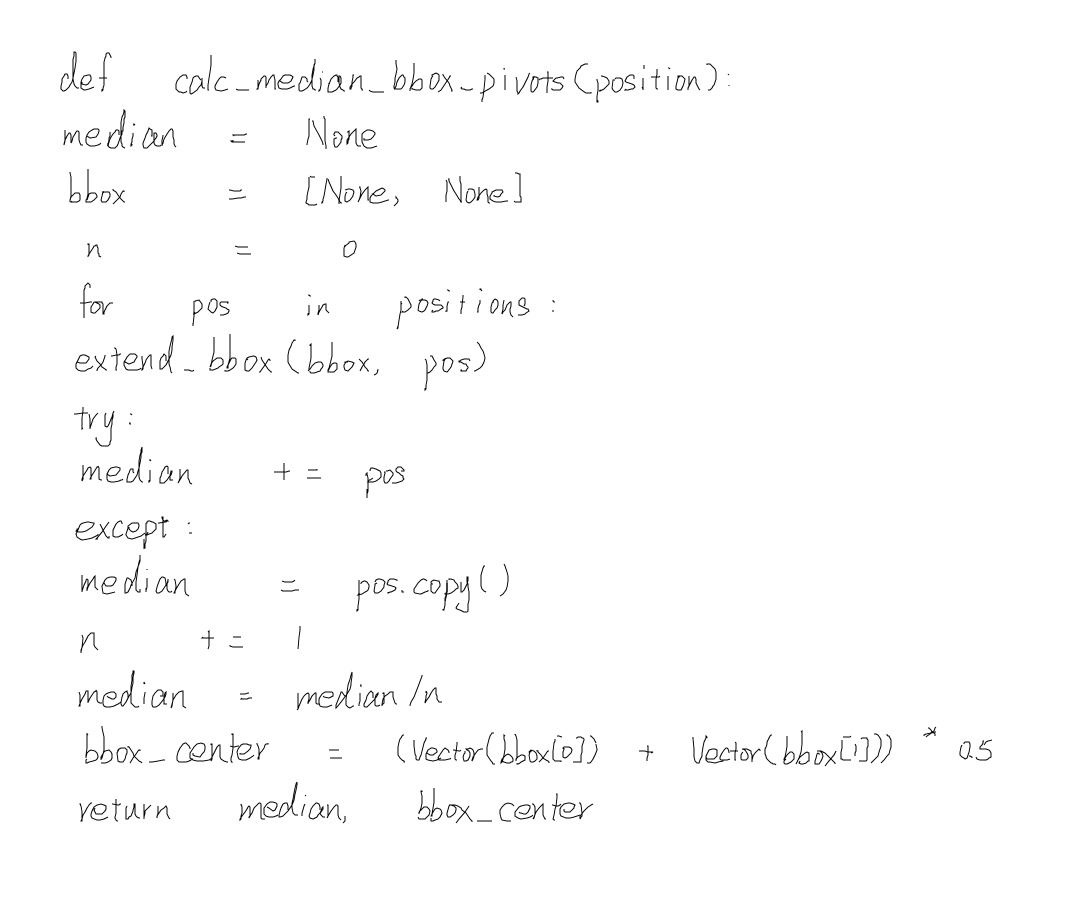 def calc_median_bbox_pivots(position):
median = None
bbox = [None, None]
n = 0
for pos in positions:
extend_bbox(bbox, pos)
try:
median += pos
except:
median = pos.copy()
n += 1
median = median/n
bbox_center = (Vector(bbox[0]) + Vector(bbox[1])) * 0.5
return median, bbox_center